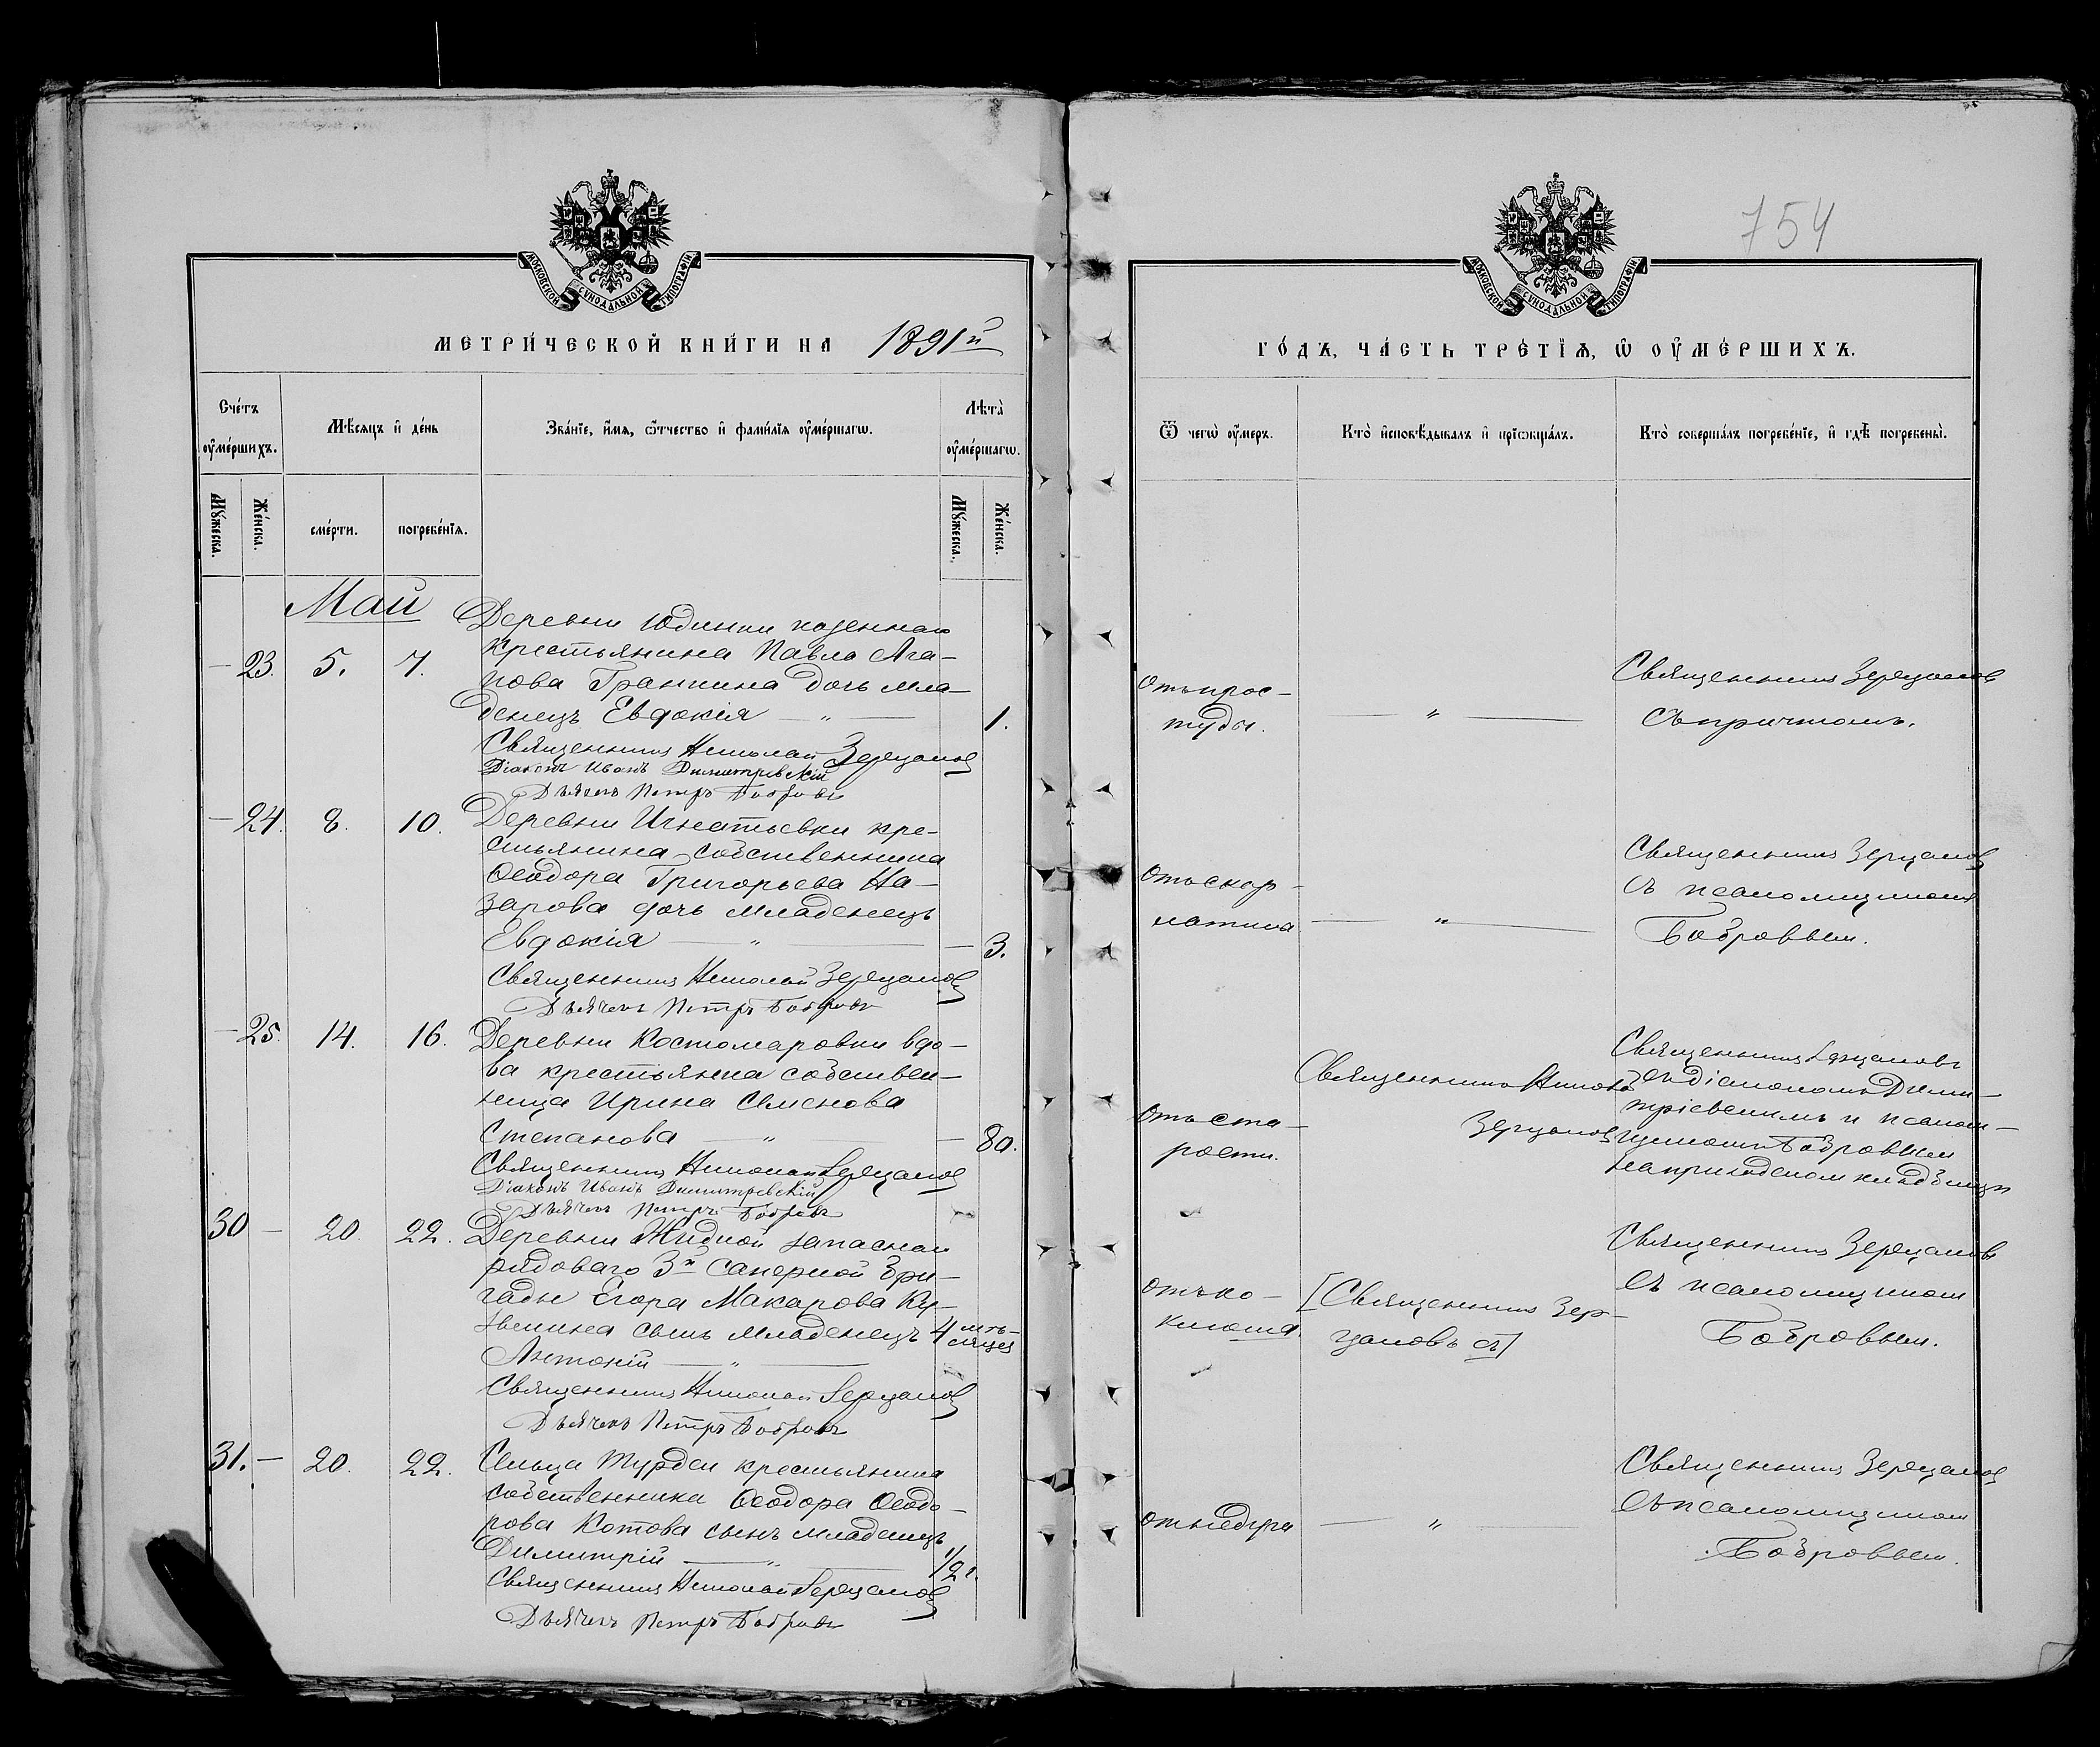 МОСКОВСКОЙ СѴНОДАЛЬНОЙ ТИПОГРАФІИ
МЕТРИ́ЧЕСКОЙ КНИ́ГИ НА 1891й
Сче́тъ оу҆ме́ршихъ.
Мѣ́сяцъ и҆ де́нь
Зва́нїе, и҆́мя, ѻ҆́тчество и҆ фами́лїя оу҆ме́ршагѡ.
Лѣта̀ оу҆ме́ршагѡ.
Мꙋ́жеска.
Же́нска.
сме́рти.
погребе́нїя.
Мꙋ́жеска.
Же́нска.
Май
Деревни Юдинки казеннаго
— 23. 5. 7. крестьянина Павла Ага-
пова Гранкина дочь мла-
денецъ Евдокія — „ — 1.
Священникъ Николай Зерцаловъ
Діаконъ Иванъ Димитревскій
Дьячекъ Петръ Бобровъ
— 24. 8. 10. Деревни Игнатьевки кре-
стьянина собственника
Ѳеодора Григорьева На-
зарова дочь младенецъ
Евдокія — „ — 3.
Священникъ Николай Зерцаловъ
Дьячекъ Петръ Бобровъ
— 25. 14. 16. Деревни Костомаровки вдо-
ва крестьянка собствен-
ница Ирина Семенова
Степанова — „ — 80.
Священникъ Николай Зерцаловъ
Діаконъ Иванъ Димитревскій
Дьячекъ Петръ Бобровъ
30 — 20. 22. Деревни Жидкой запаснаго
рядоваго 3й саперной бри-
гады Егора Макарова Ку-
сынъ младенецъ 4 мѣ-
сяцев
Антоній — „ —
Священникъ Николай Зерцаловъ
Дьячекъ Петръ Бобровъ
31. — 20. 22. Сельца Турдей крестьянина
собственника Ѳеодора Ѳеодо-
рова Котова сынъ младенецъ
Димитрій — „ — 1/2 г.
Священникъ Николай Зерцаловъ
Дьячекъ Петръ Бобровъ
754
МОСКОВСКОЙ СѴНОДАЛЬНОЙ ТИПОГРАФІИ
ГО́ДЪ, ЧА́СТЬ ТРЕ́ТЇѦ, Ѡ҆ ОУ҆МЕ́РШИХЪ.
Ѿ чегѡ̀ оу҆́меръ.
Кто̀ и҆сповѣ́дывалъ и҆ прїѡбща́лъ.
Кто̀ соверша́лъ погребе́нїе, и҆ гдѣ̀ погребены̀.
отъ прос-
туды.
— „ —
Священникъ Зерцаловъ
съ причтомъ.
отъ скар-
латина
— „ —
Священникъ Зерцаловъ
съ псаломщикомъ
Бобровым.
отъ ста-
рости.
Священникъ Николай
Зерцаловъ
Священникъ Зерцаловъ
съ діакономъ Дими-
тріевскимъ и псалом-
щикомъ Бобровым
на приходском кладбищѣ
отъ ко-
клюша.
[Священникъ Зер-
цаловъ съ]
Священникъ Зерцаловъ
съ псаломщиком
Бобровым.
— „ —
Священникъ Зерцаловъ
съ псаломщиком
Бобровым.